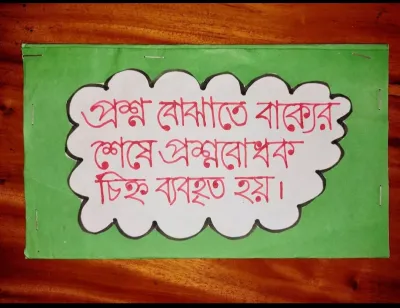 প্রশ্ন বোঝাতে বাক্যের
শেষে প্রশ্নবোধক
চিহ্ন ব্যবহৃত হয়।